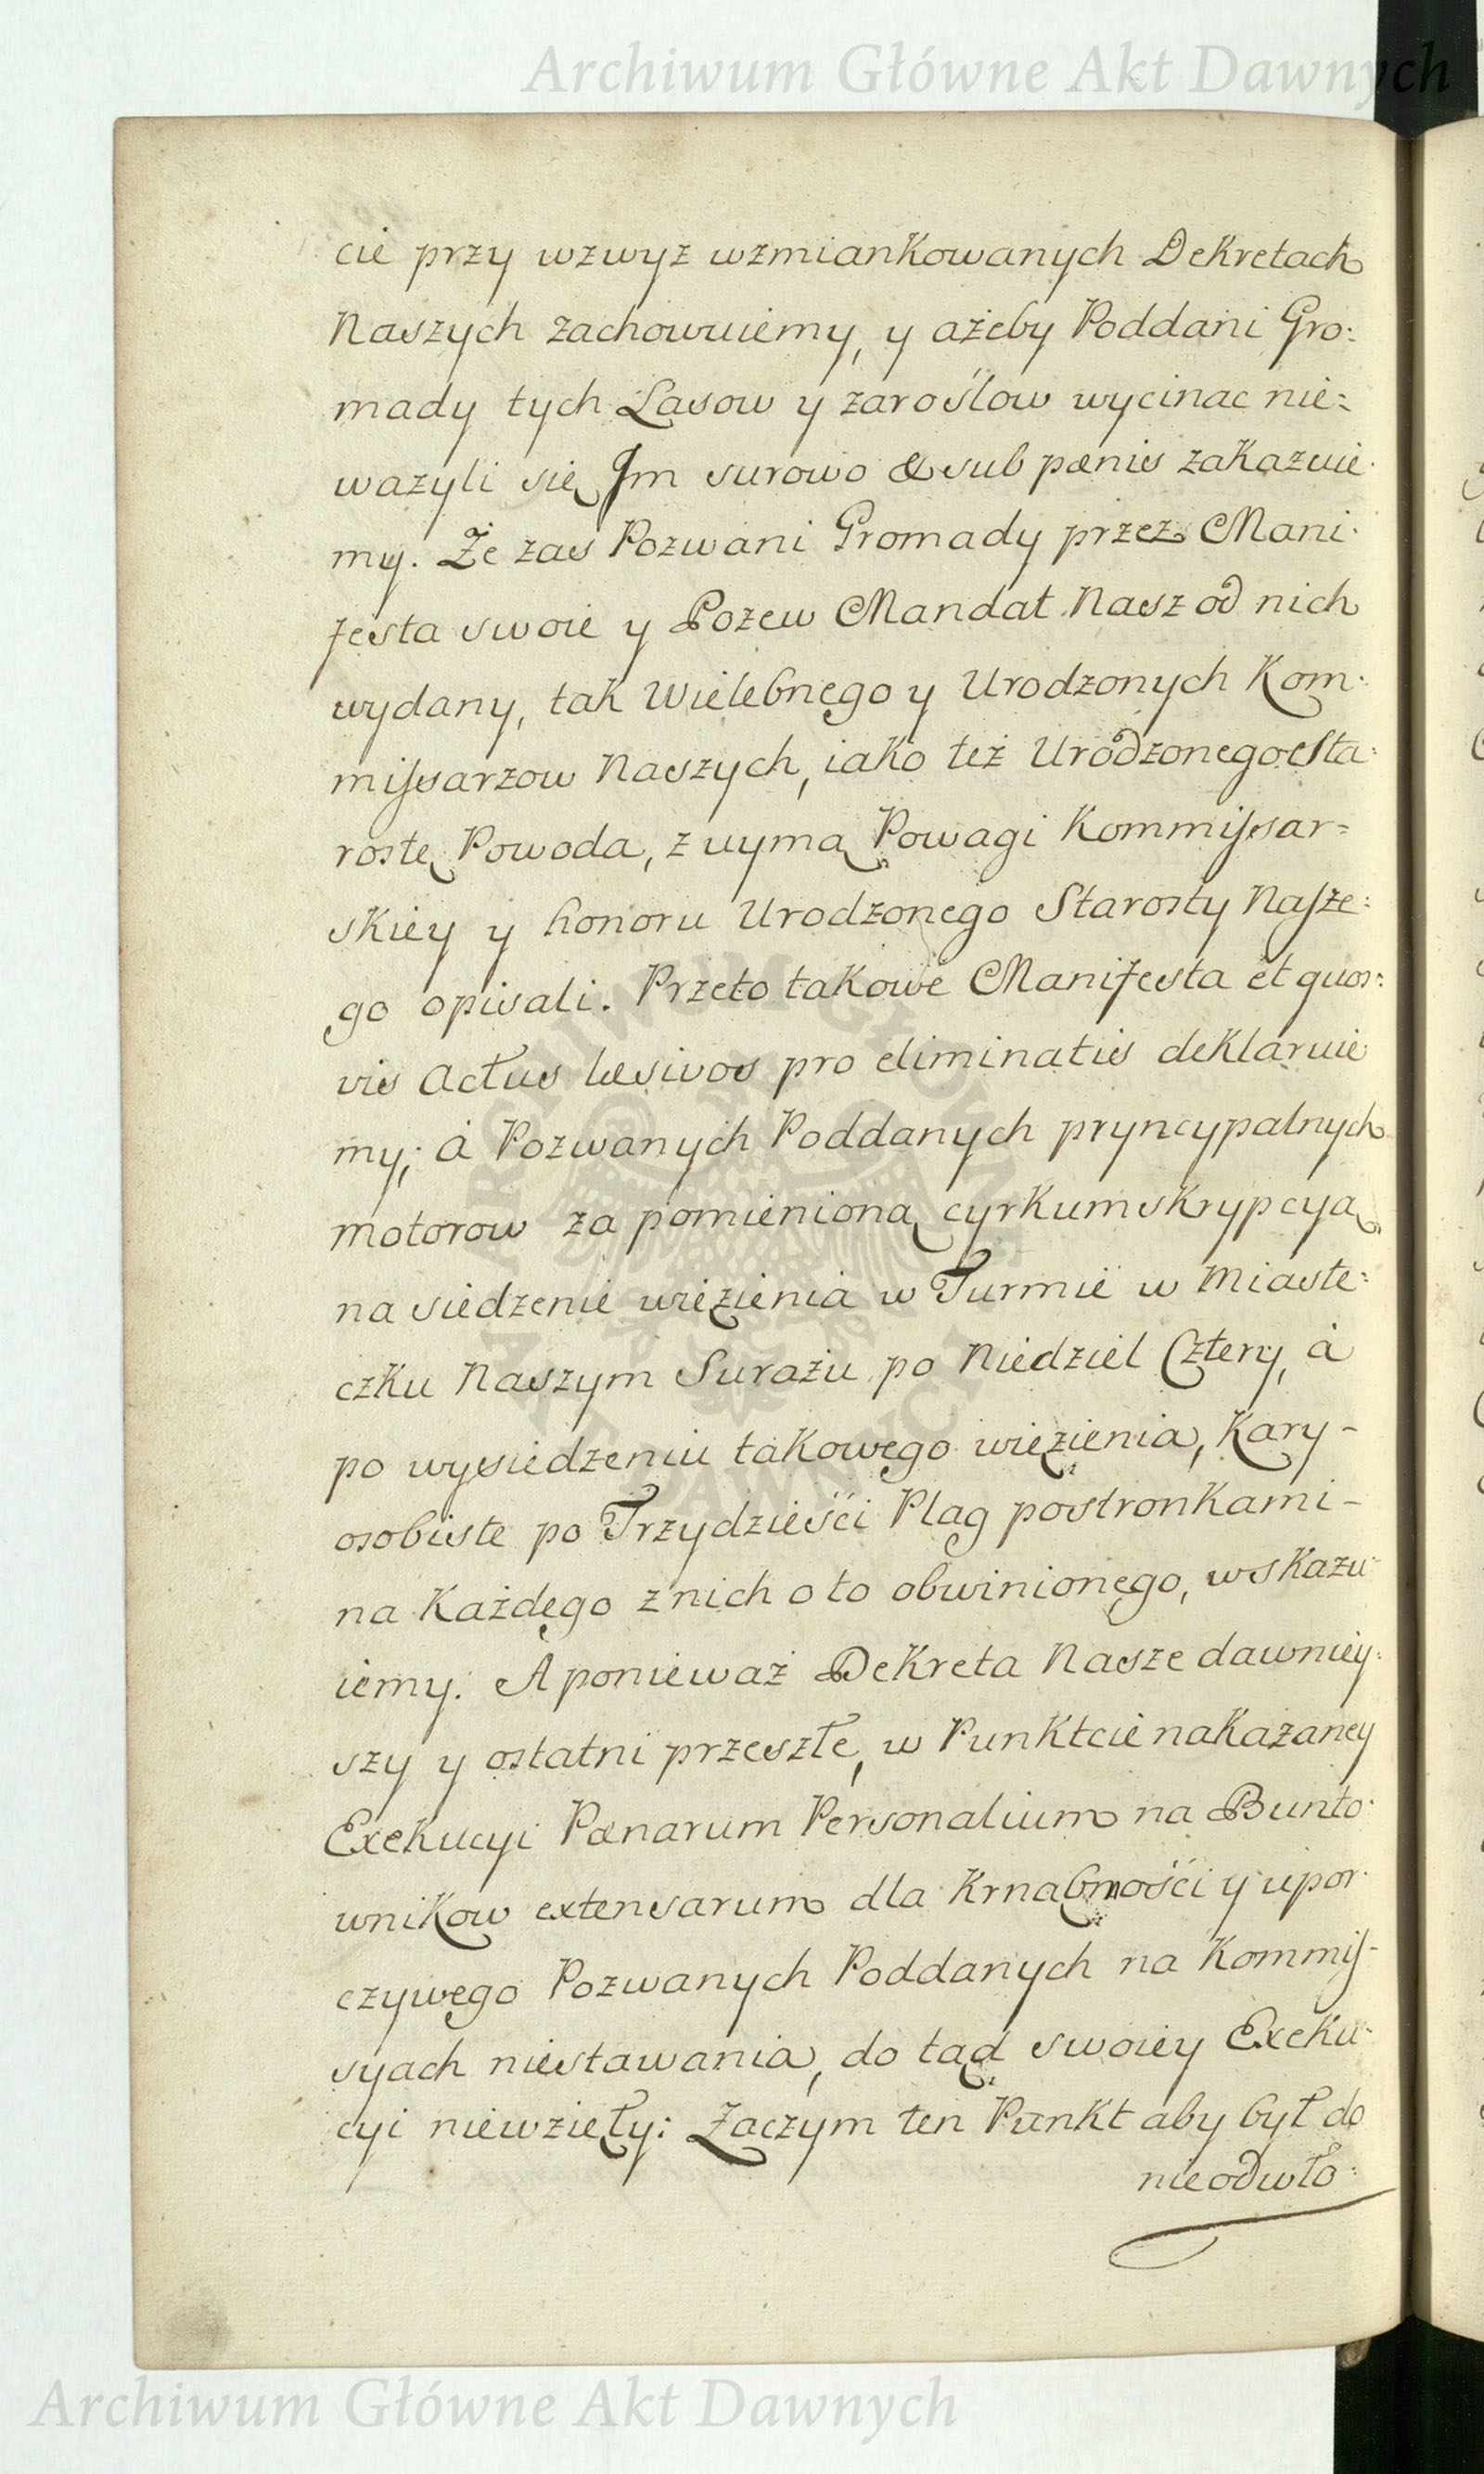 Archiwum Główne Akt Dawnych
cie przy wzwyz wzmiankowanych Dekretach
Naszych zachowuiemy, y ażeby Poddani Gro:
mady tych Lasow y zaroślow wycinac nie:
wazyli się Im surowo & sub pænis zakazuie
my. Że zas Pozwani Gromady przez Mani:
festa swoie y Pozew Mandat Nasz od nich
wydany, tak Wielebnego y Urodzonych Kom:
missarzow Naszych, iako też Urodzonego Sta:
rostę Powoda, z uymą Powagi Kommissar=
skiey y honoru Urodzonego Starosty Nasze:
go opisali. Przeto takowe Manifesta et quos:
vis Actus læsivos pro eliminatis deklaruie
my; á Pozwanych Poddanych pryncypalnych
motorow za pomienioną cyrkumskrypcyą
na siedzenie więzienia w Turmie w Miaste:
czku Naszym Surażu po Niedziel Cztery, á
po wysiedzeniu takowego więzienia, Kary-
osobiste po Trzydzieści Plag postronkami-
na Każdego z nich o to obwinionego, wskazu
iemy. A ponieważ Dekreta Nasze dawniey:
szy y ostatni przeszłe, w Punktcie nakazaney
Exekucyi Pænarum Personalium na Bunto:
wnikow extensarum dla Krnabności y upor:
czywego Pozwanych Poddanych na Kommis-
syach niestawania, do tąd swoiey Exeku:
cyi niewzięły: Zaczym ten Punkt aby był do
nieodwło:
ARCHIWUM GŁÓWNE AKT DAWNYCH
Archiwum Główne Akt Dawnych